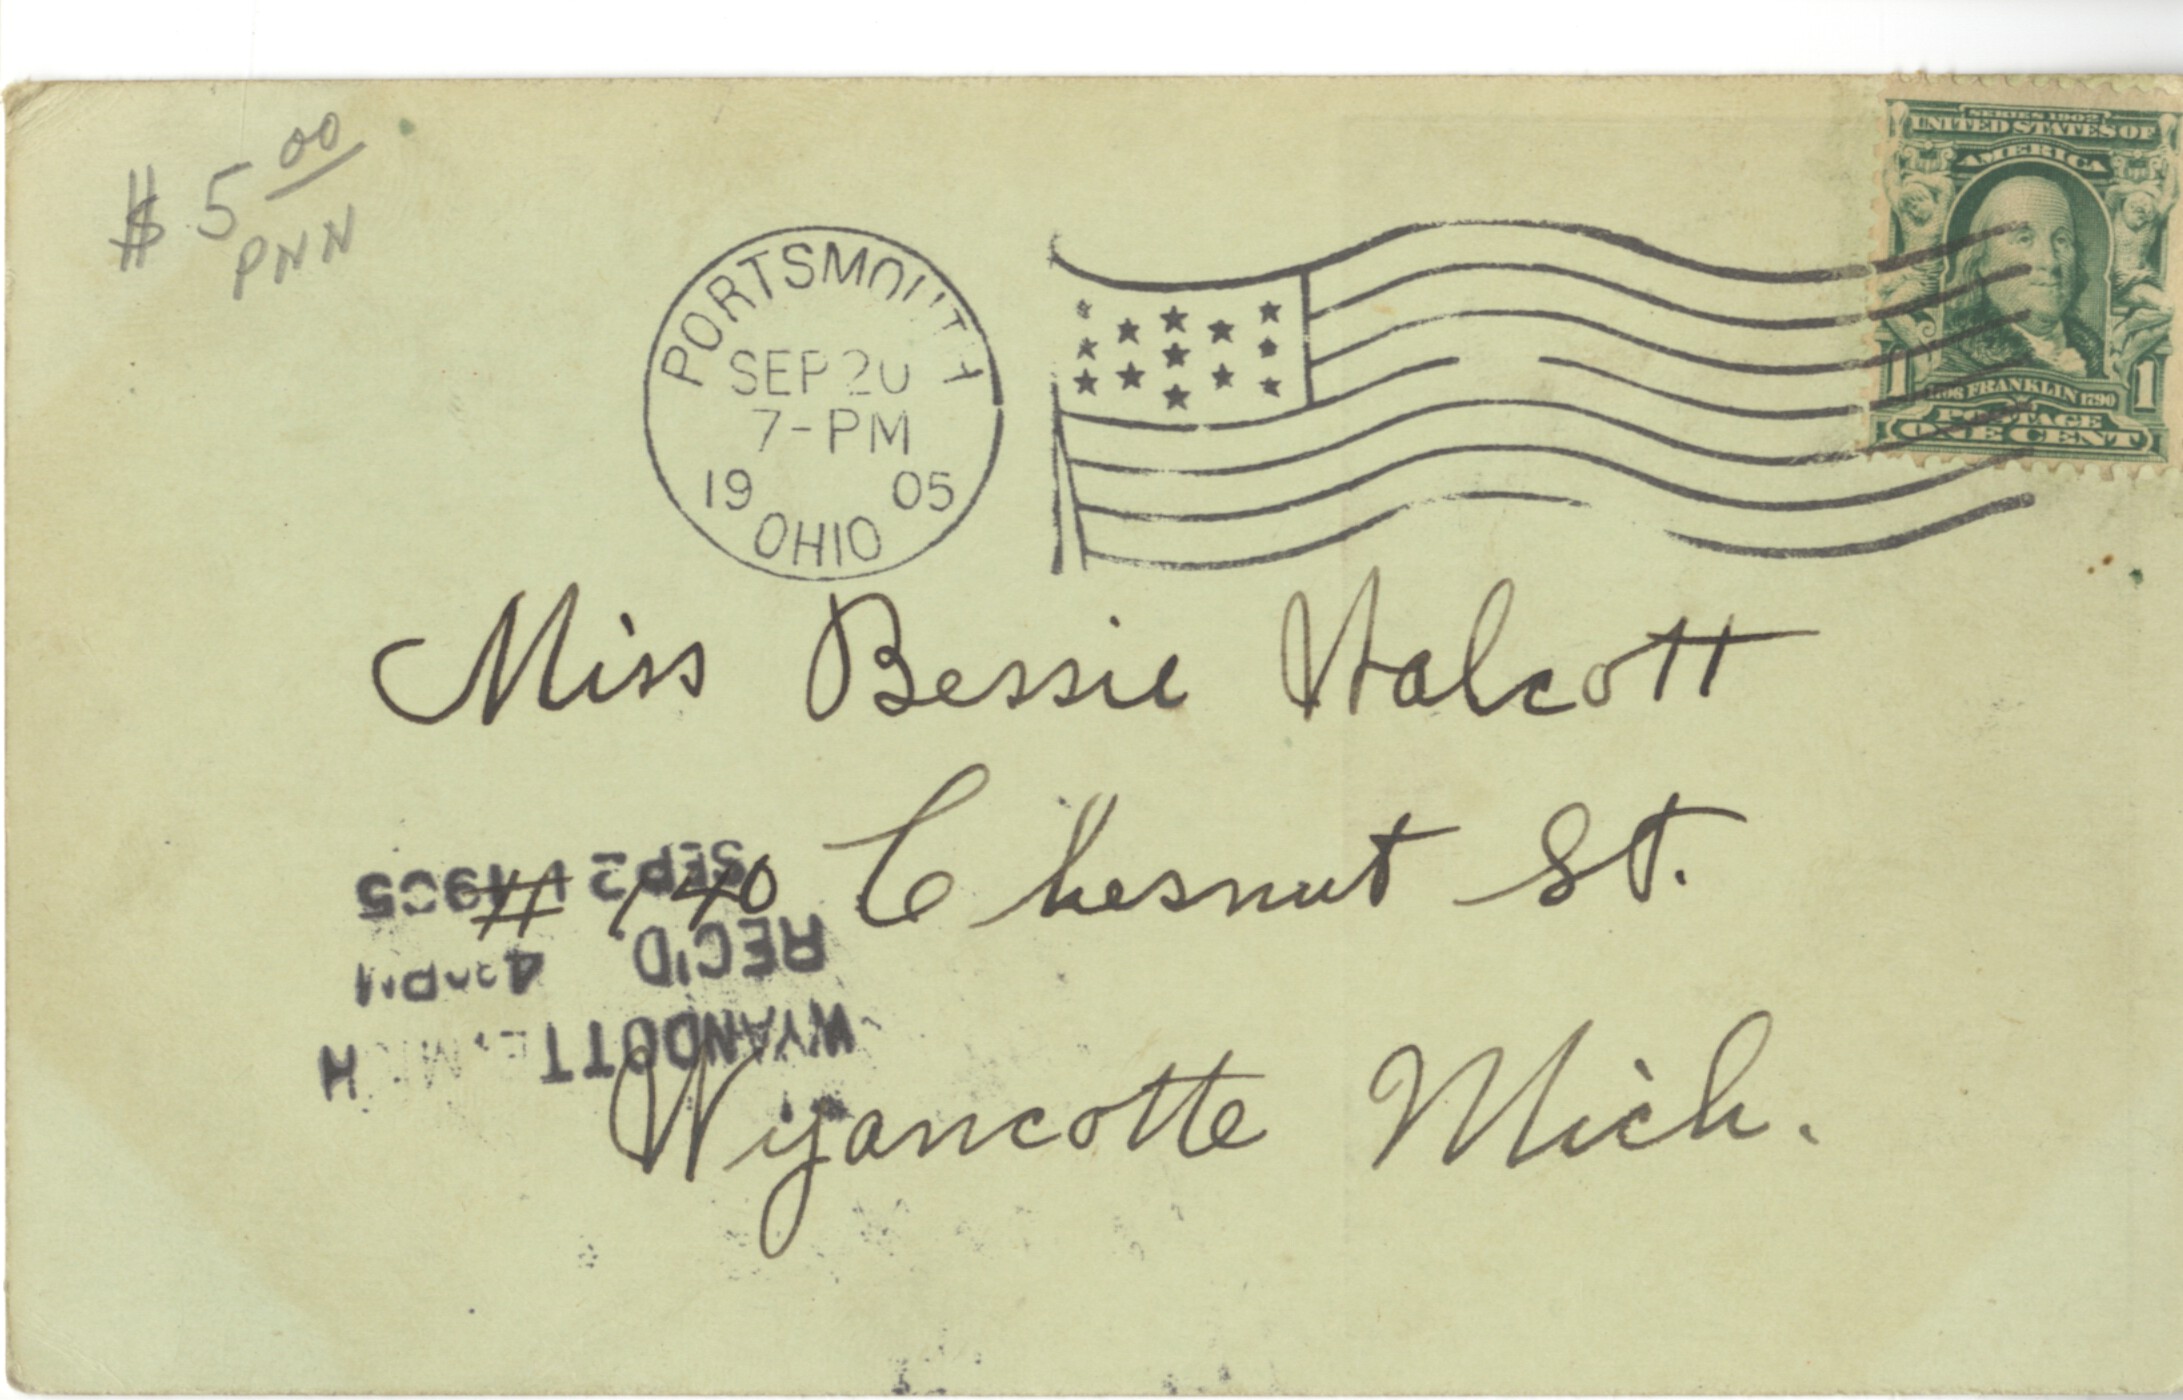 $ 5 00
PNN
SERIES 1902
UNITED STATES OF
AMERICA
1 1
FRANKLIN 1790
POSTAGE
ONE CENT
PORTSMOUTH
SEP 20
7-PM
19 05
OHIO
Miss Bessie Halcott
# 140 Chesnut St.
Wyancotte Mich.
WYANDOTTE, MICH
REC'D. 4 PM
SEP 2 1905